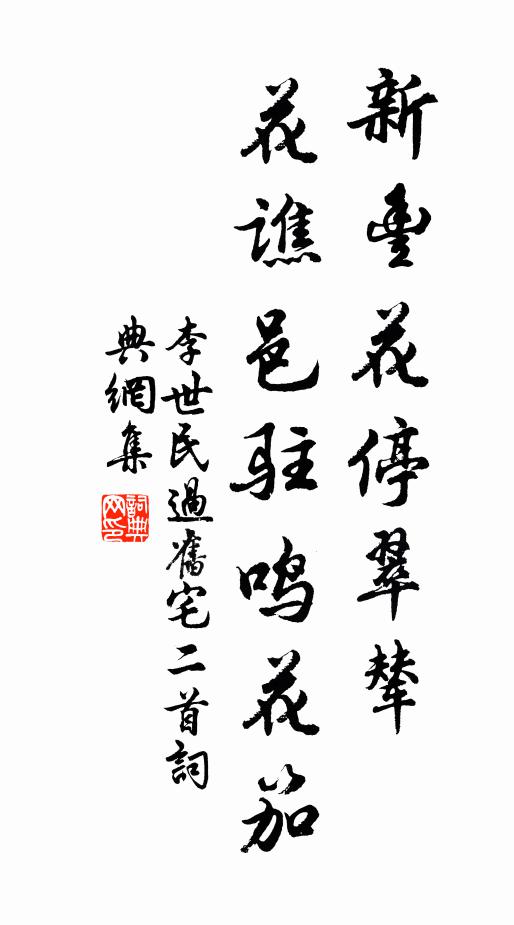 新豐花停翠輦
花譙邑駐鳴花笳
李世民過舊宅二首詞
典網集
詞典网印